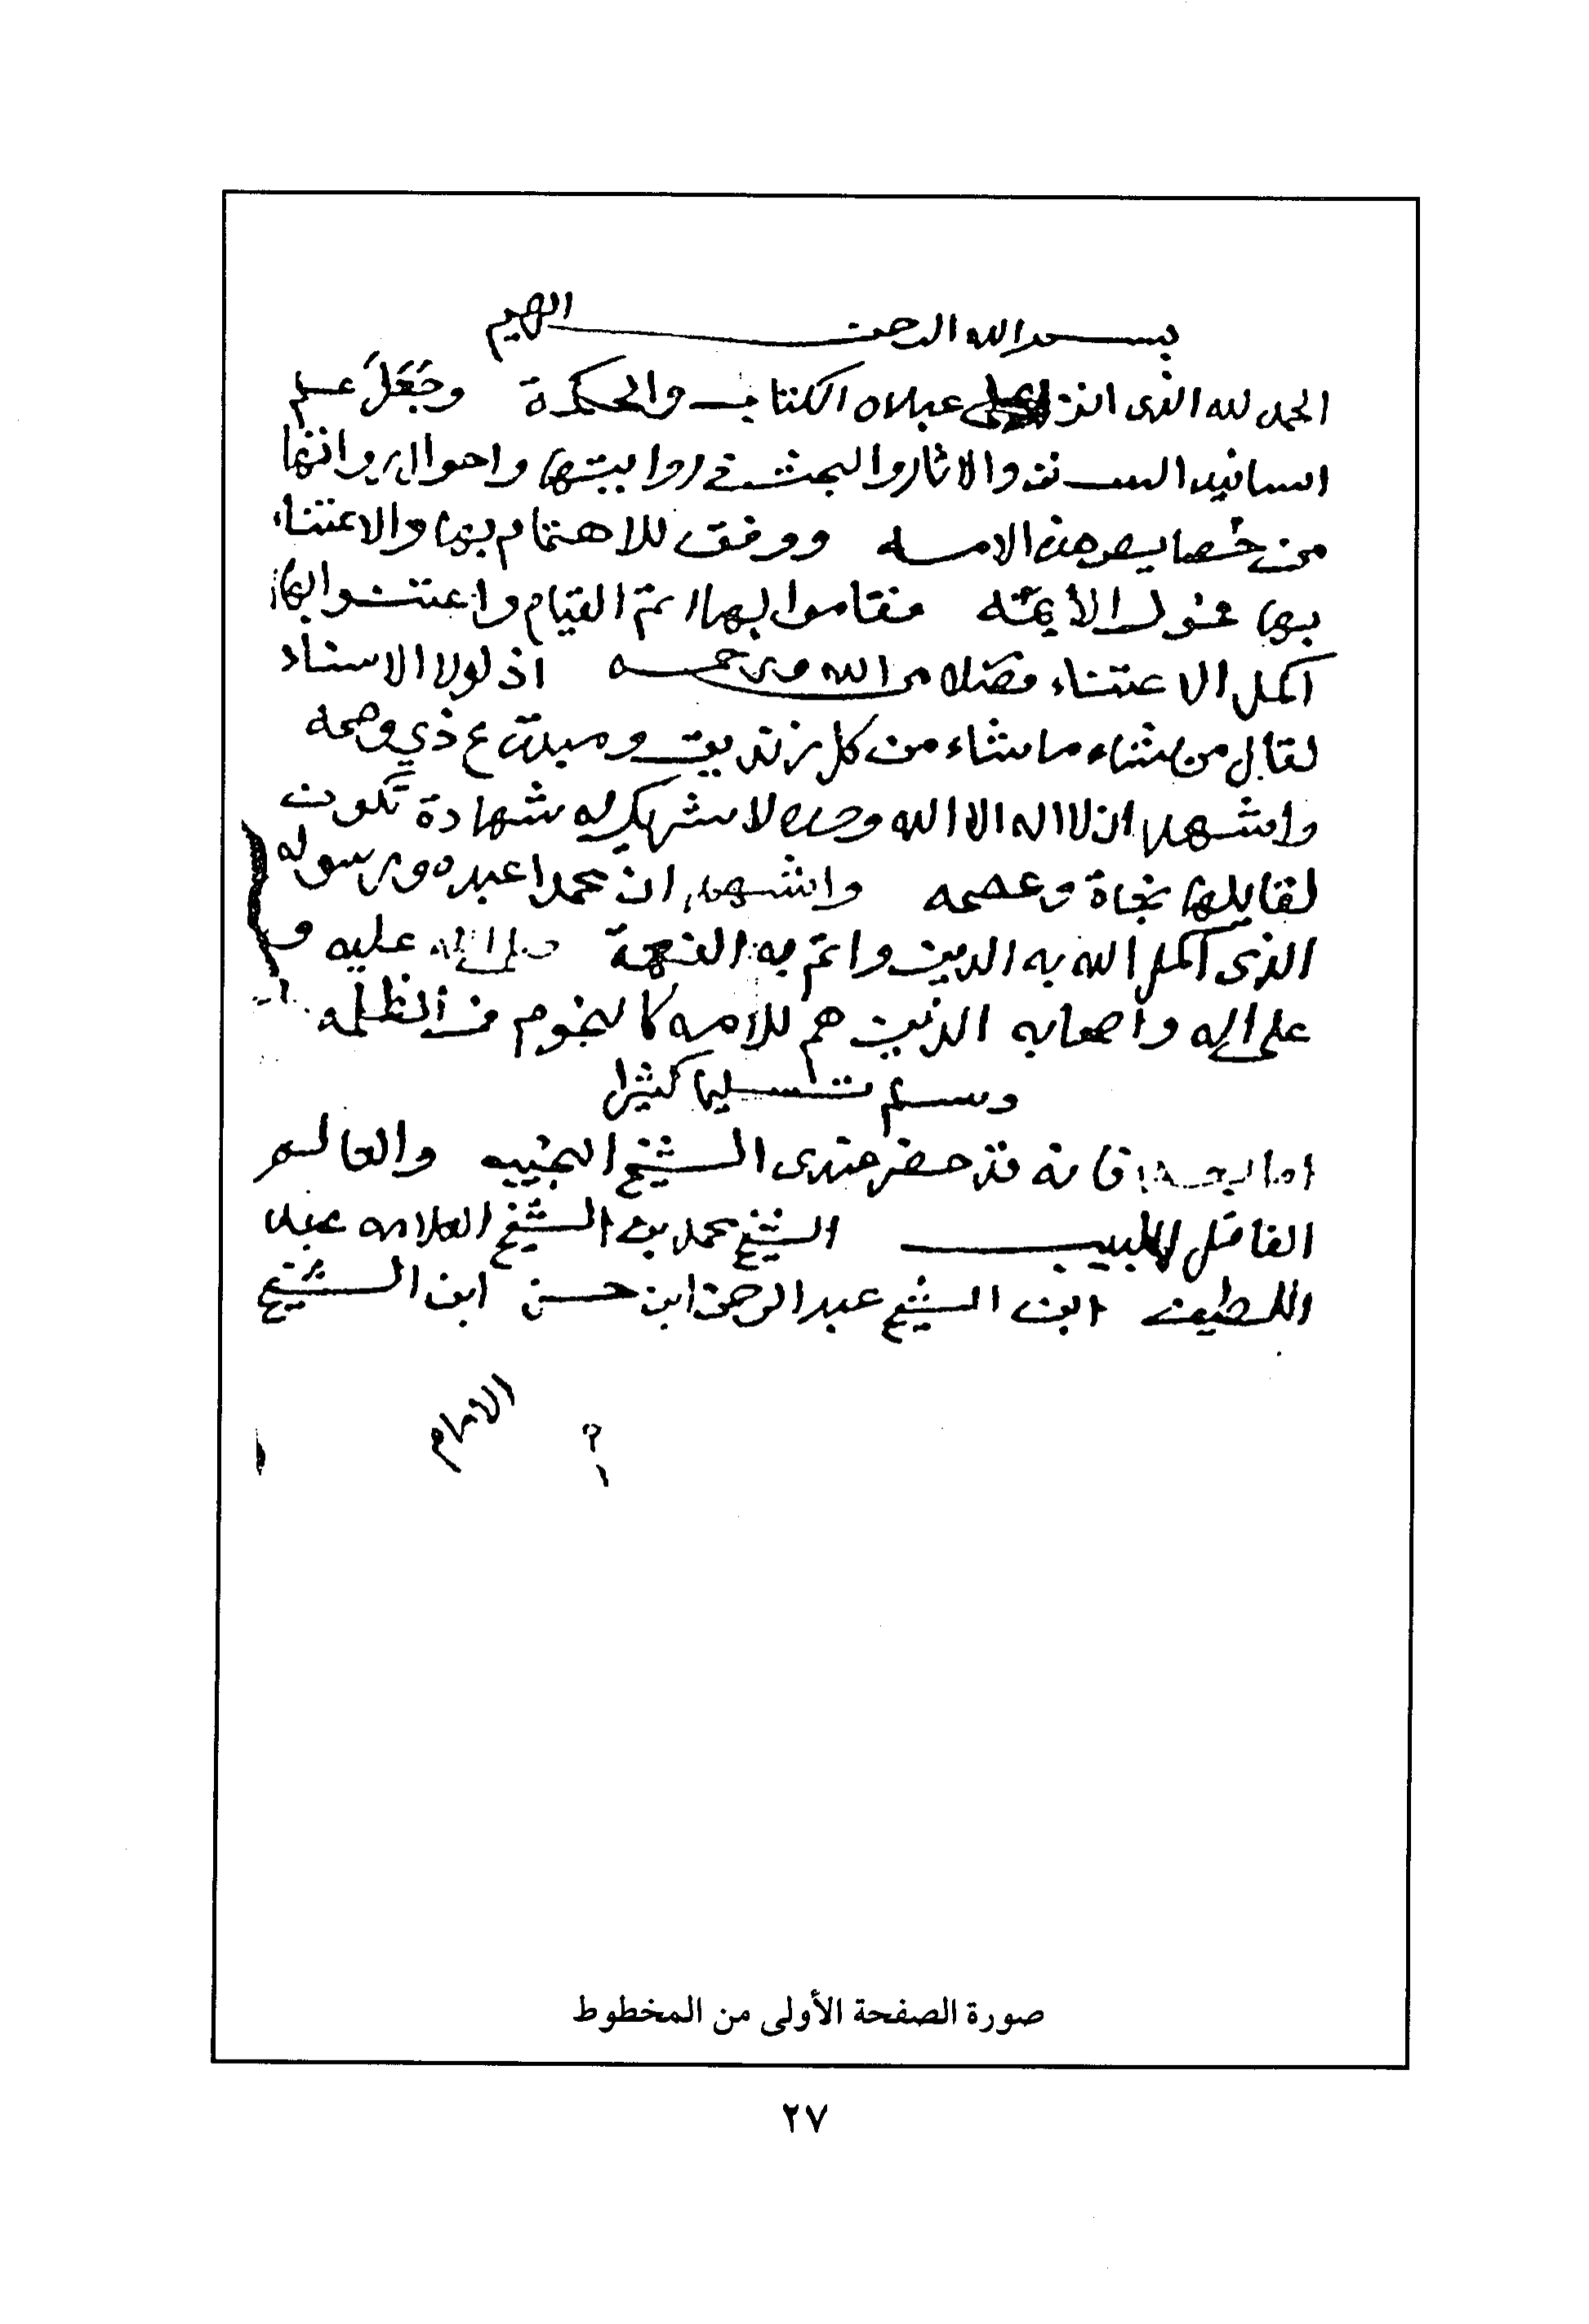 بسم الله الرحمن الرحيم
الحمد لله الذى انزل على عبده الكتاب والحكمة وجَعَلَ علم
اسانيد السنة والاثار والبحث فى روايتها واحوال رواتها
من خصايص هذه الامه ووفق للاهتمام بها والاعتناء
بها فحول الأيمّه فقاموا بها اتم القيام واعتنوا بها
اكمل الاعتناء فضلا من الله ورحمه اذ لولا الاسناد
لقال من شاء ما شاء من كل زنديق ومبتدع ذي وصمه
واشهد ان لا اله الا الله وحده لا شريك له شهادة تكون
لقايلها نجاة وعصمه واشهد ان محمدا عبده ورسوله
الذى اكمل الله به الدين واتم به النعمة صلى الله عليه و
على اله واصحابه الذين هم للامه كالنجوم فى الظلمه
وسلم تسليما كثيرا
اما بعد فانه قد حضر عندى الشيخ النجيب والعالم
الفاضل اللبيب الشيخ محمد بن الشيخ العلامه عبد
اللطيف ابن الشيخ عبد الرحمن ابن حسن ابن الشيخ
الامام
صورة الصفحة الأولى من المخطوط
٢٧